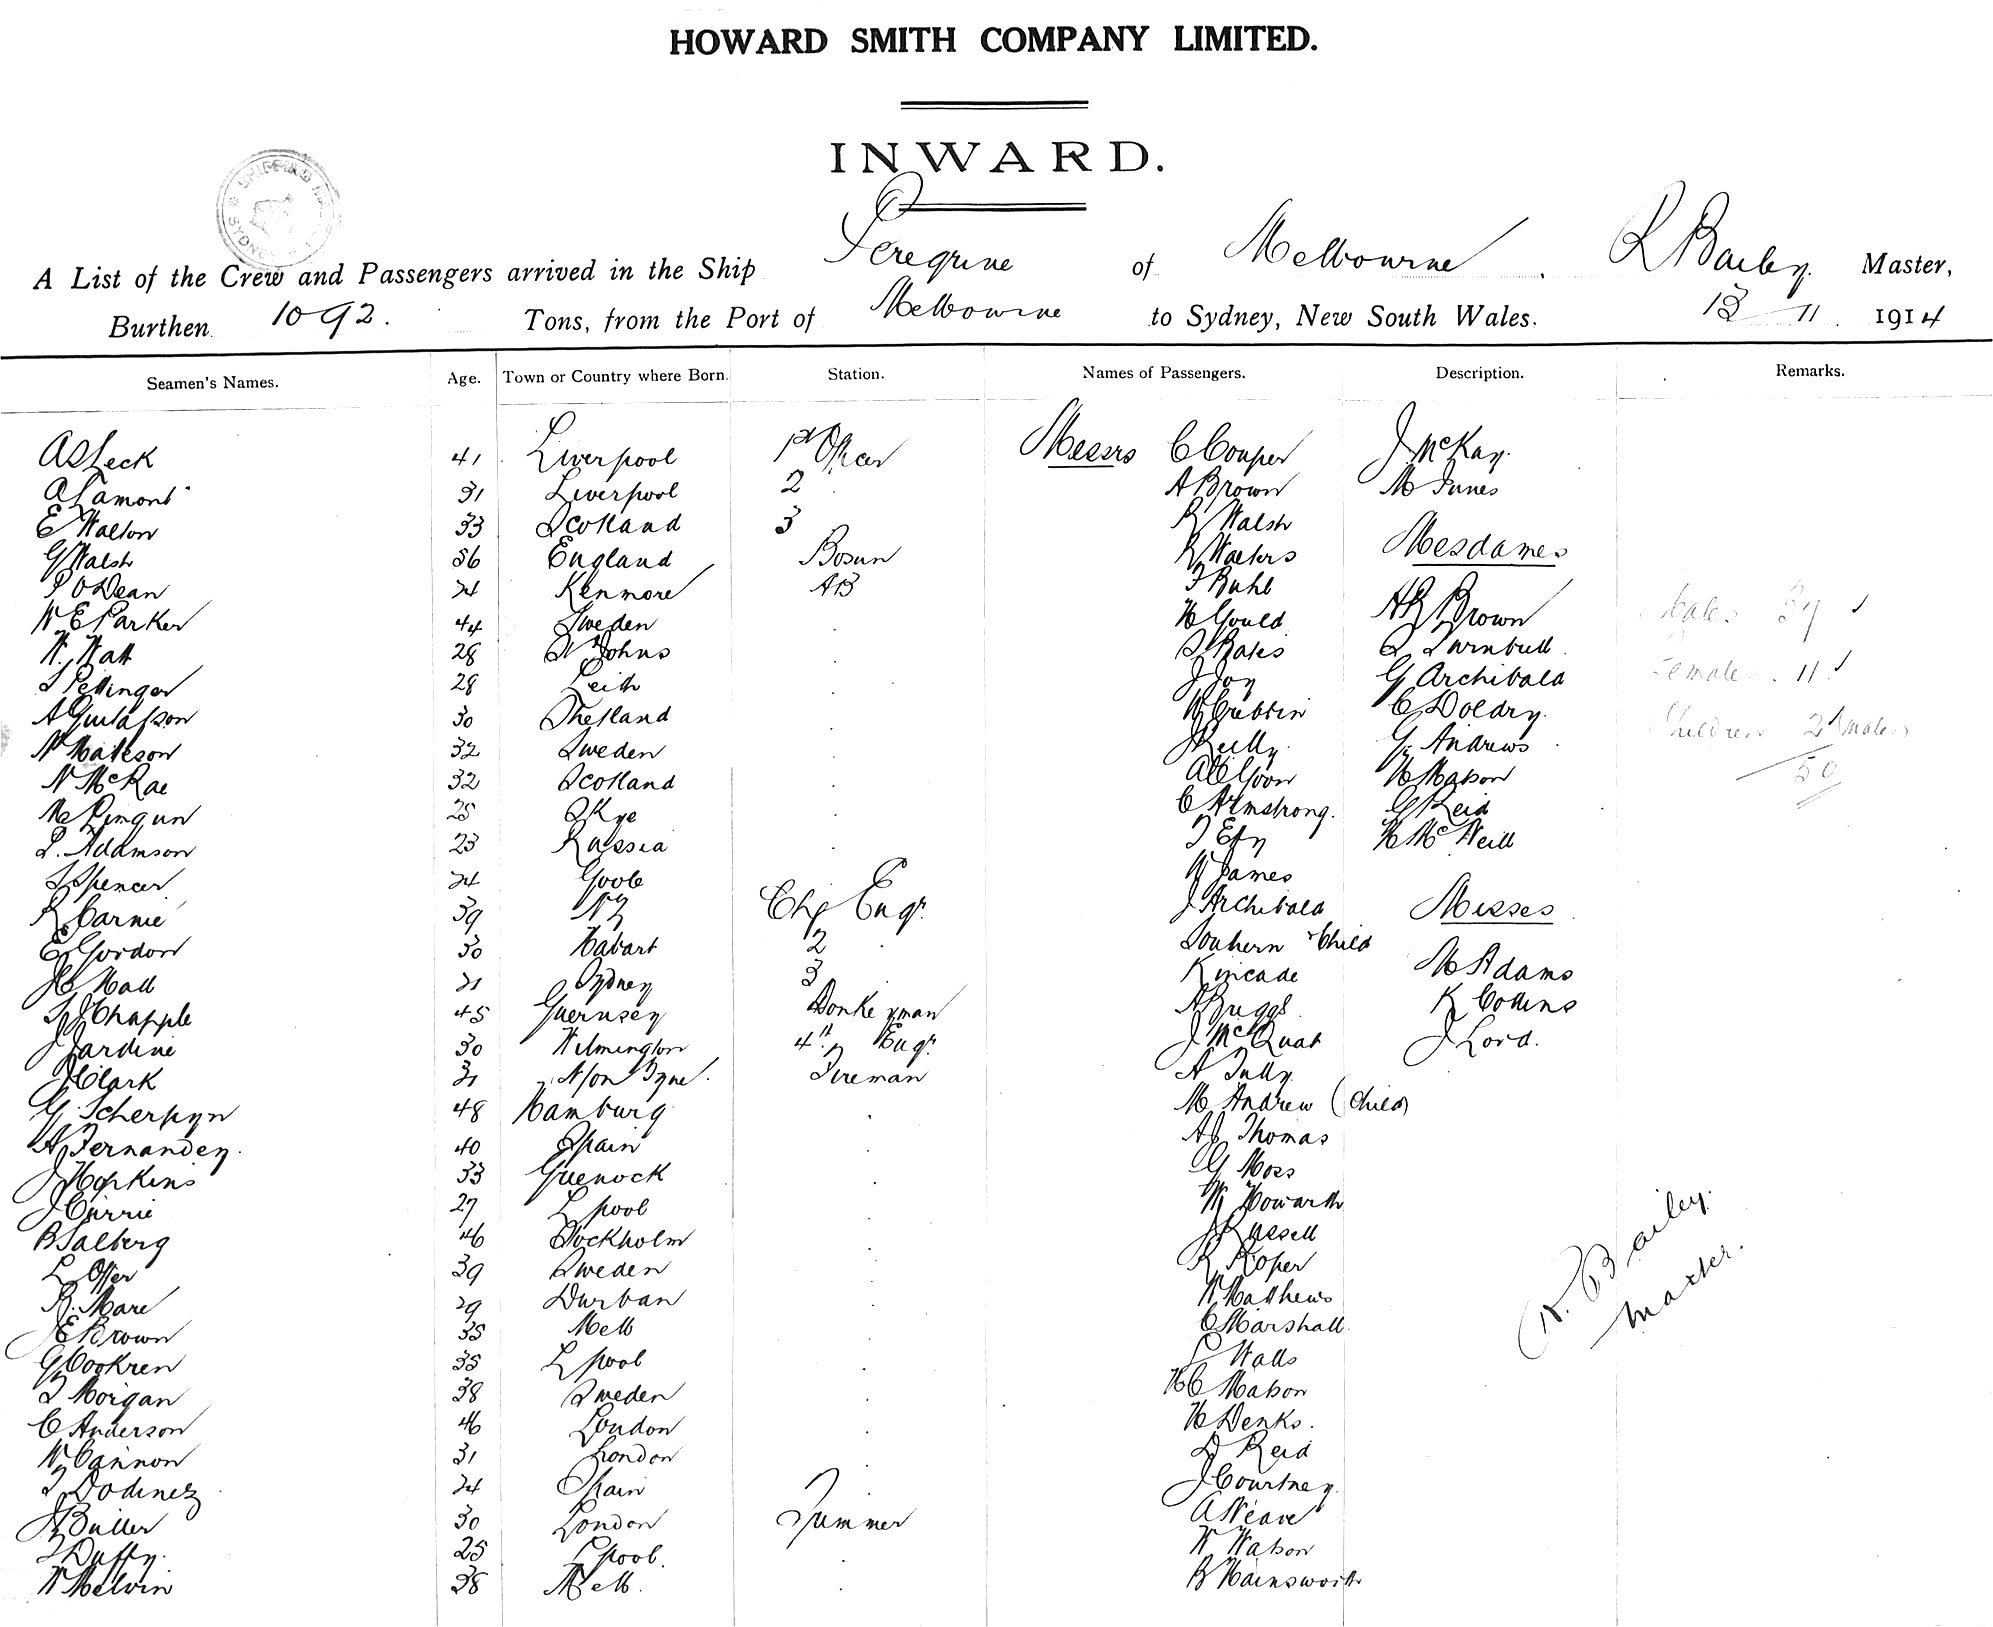 HOWARD SMITH COMPANY LIMITED.
INWARD.
A List of the Crew and Passengers arrived in the Ship Peregrine of Melbourne. R Bailey. Master,
Burthen 1092. Tons, from the Port of Melbourne to Sydney, New South Wales. 13 - 11. 1914
Seamen's Names. Age. Town or Country where Born. Station. Names of Passengers. Description. Remarks.
41 Liverpool 1st Officer Messrs C Couper J McKay.
A Lamont 31 Liverpool 2 A Brown M Innes
E Walton 33 Scotland 3 R Walsh
G Walsh 56 England Bosun R Walters Mesdames
P O'Dean Kenmore AB F Buhl
W E Parker 44 Sweden H Gould AR Brown
W. Watt 28 St Johns S Bates Turnbull
28 Leith J Joy G Archibald Females 11
A Gustafson 30 Shetland W Cribbin C Doldry.
N Mateson 32 Sweden J Reilly G Andrews Children 2 males
N McRae 32 Scotland H Mason 50
25 Skye C Armstrong. G Reid
L. Adamson 23 Russia H McNeill
S Spencer 24 Goole W James
R Carnie 39 NZ Chf Engr. J Archibald Misses
E Gordon 30 Hobart 2 Southern + Child
H Hall 21 Sydney 3 Kincade M Adams
S J Chapple 45 Guernsey Donkeyman A Briggs K Collins
J Jardine 30 Wilmington 4th Engr. J McQuat J Lord.
J Clark 31 N/on Tyne. Fireman A Tully
G Scherpyn 48 Hamburg M Andrew (Child)
A Fernandez. 40 Spain AJ Thomas
J Hopkins 33 Greenock G Moss
J Currie 27 L'pool W Howarth
B Salberg 46 Stockholm J Russell
L Offer 39 Sweden R Roper R. Bailey.
R. Mare 29 Durban W Matthews Master.
E Brown 35 Melb C Marshall.
G Cookren 35 L'pool L Walls
T Morgan 38 Sweden HC Mason
C Anderson 46 London H Denks.
W Cannon 31 London D Reid
24 Spain J Courtney.
J Butler 30 London Trimmer A Neave
J Duffy. 25 L'pool. W Watson
W Melvin 38 Melb. B Hainsworth